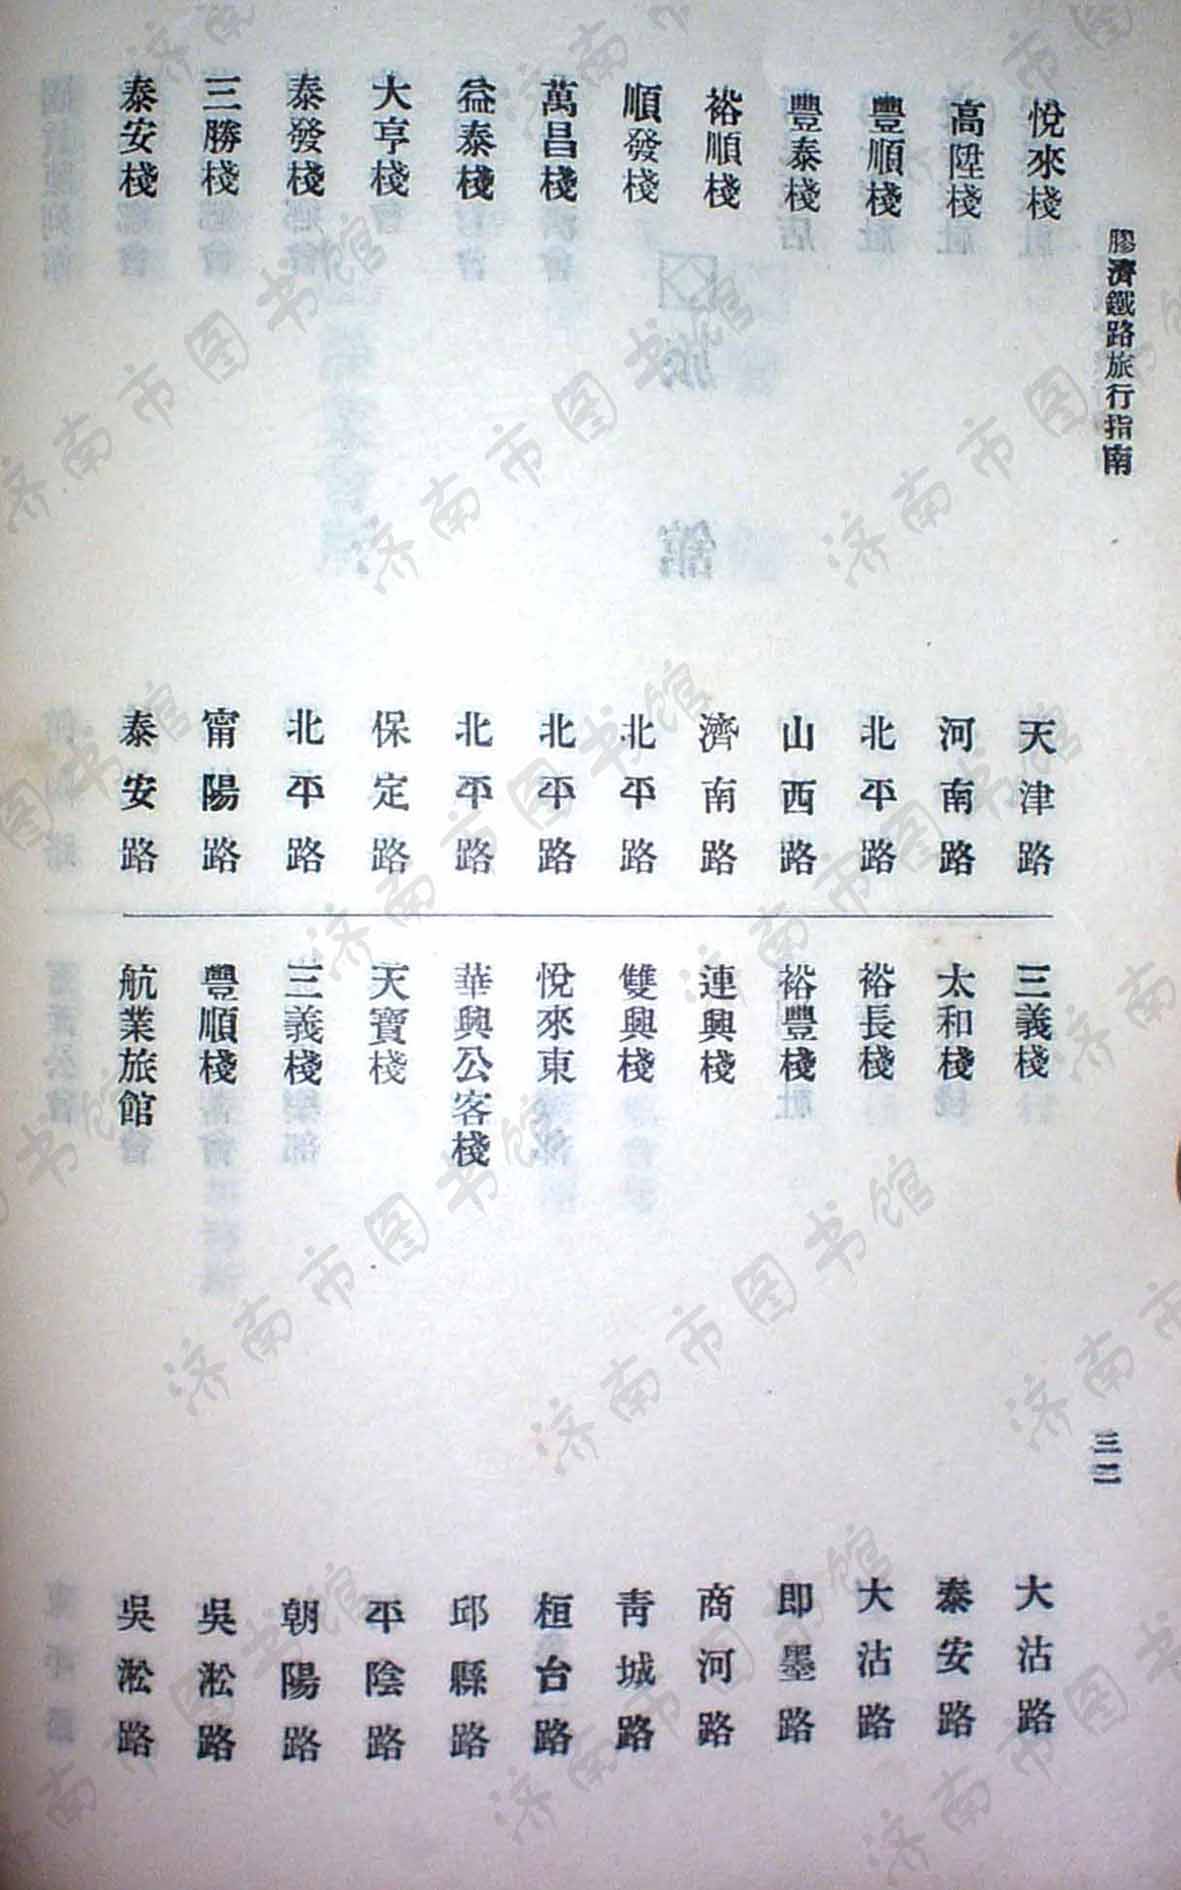 膠濟鐵路旅行指南
三二
悅來棧 天津路
高陞棧 河南路
豐順棧 北平路
豐泰棧 山西路
裕順棧 濟南路
順發棧 北平路
萬昌棧 北平路
益泰棧 北平路
大亨棧 保定路
泰發棧 北平路
三勝棧 甯陽路
泰安棧 泰安路
三義棧 大沽路
太和棧 泰安路
裕長棧 大沽路
裕豐棧 即墨路
連興棧 商河路
雙興棧 青城路
悅來東 桓台路
華興公客棧 邱縣路
天寶棧 平陰路
三義棧 朝陽路
豐順棧 吳淞路
航業旅館 吳淞路
济南市图书馆